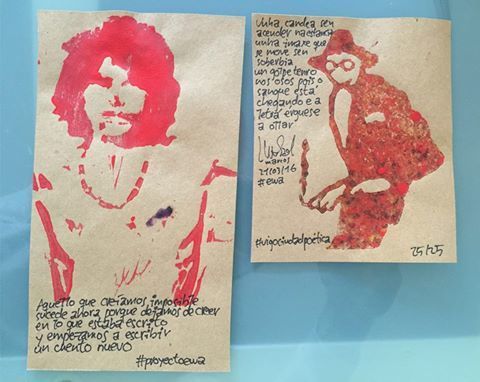 Aquello que creíamos imposible
sucede ahora porque dejamos de creer
en lo que estaba escrito
y empezamos a escribir
un cuento nuevo
#proyectoewa
Unha candea sen
acender na estancia
unha imaxe que
se move sen
soberbia
un golpe tenro
nos osos pois o
sangue está
chegando e a
letra érguese
a ollar
marcos
21/03/16
#ewa
#vigociudadpoética
25/25